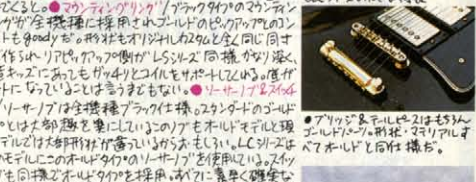 でくると。●マウンティングリング/ブラックタイプのマウンティン
グが全機種に採用されゴールドのピックアップとのコン
トもgoodyだ。形状もオリジナルカスタムと全く同じ同寸
作られ、リアピックアップ側がLSシリーズ同様かなり深く、
キッズにあってもガッチリとコイルをサポートしてくれる。底が
トになっていることは言うまでもない。●リーサーノブ&スイッチ
/リーサーノブは全機種ブラック仕様。スタンダードのゴールド
プとは大部趣を異にしているこのノブもオールドモデルと現
デルでは大部形状が違っているからおもしろい。LCシリーズは
ルモデルにこのオールドタイプのリーサーノブを使用している。スイッ
も同様でオールドタイプを採用。すべてに素早く確実な
●ブリッジ&テールピースはもちろん
ゴールドパーツ。形状・マテリアルす
べてオールドと同仕様だ。